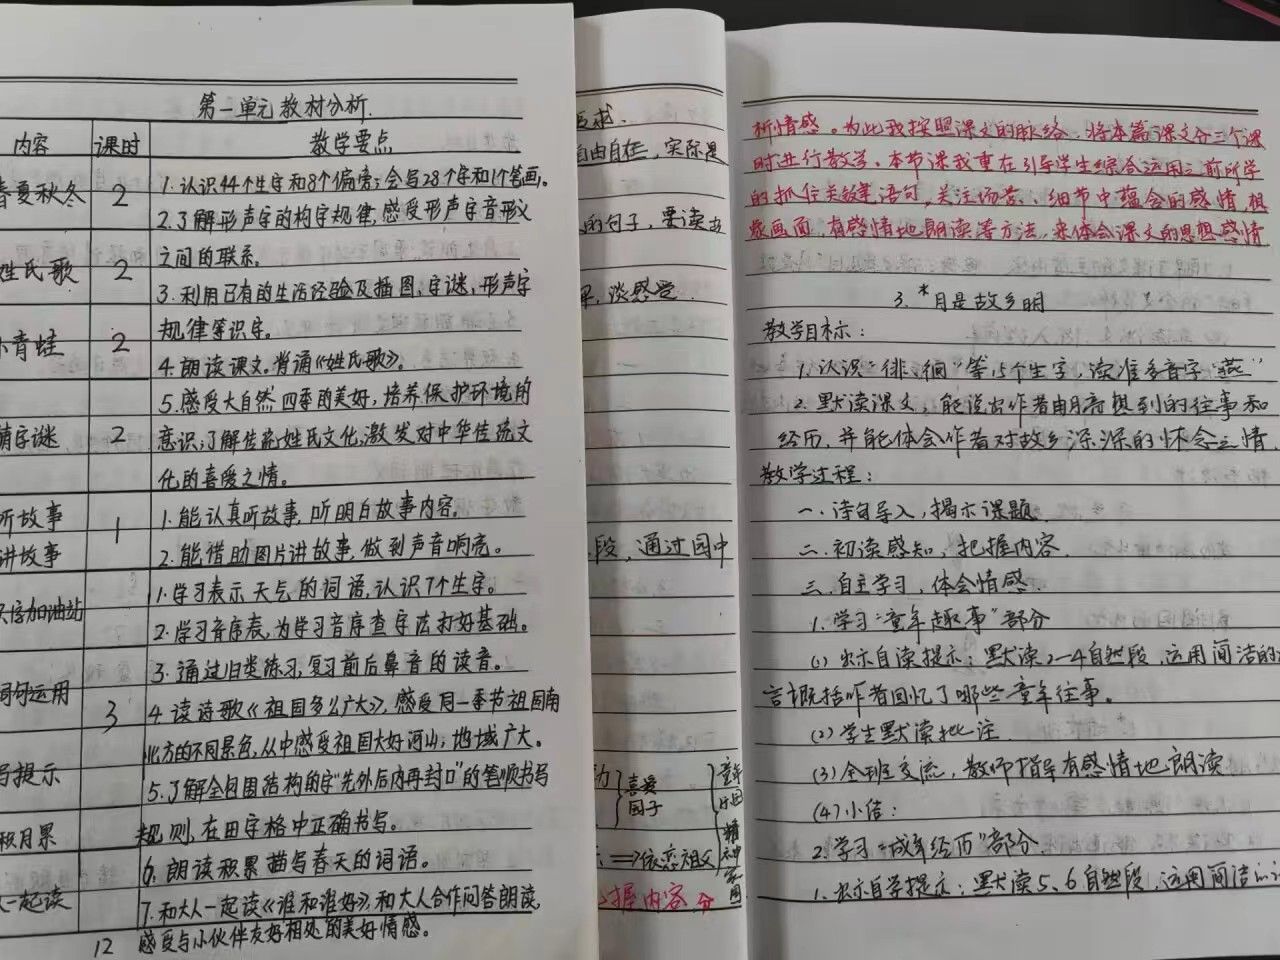 第一单元教材分析.
内容 课时 教学要点
春夏秋冬 2 1.认识44个生字和8个偏旁;会写28个字和1个笔画。
2.了解形声字的构字规律,感受形声字音形义
之间的联系。
姓氏歌 2
3.利用已有的生活经验及插图、字谜、形声字
规律等识字。
小青蛙 2
4.朗读课文。背诵《姓氏歌》。
5.感受大自然四季的美好,培养保护环境的
猜字谜 2 意识;了解传统姓氏文化,激发对中华传统文
化的喜爱之情。
听故事 1 1.能认真听故事,听明白故事内容。
讲故事 2.能借助图片讲故事,做到声音响亮。
识字加油站 1.学习表示天气的词语,认识7个生字。
2.学习音序表,为学习音序查字法打好基础。
3.通过归类练习,复习前后鼻音的读音。
词句运用 3 4.读诗歌《祖国多么广大》,感受同一季节祖国南
北方的不同景色,从中感受祖国大好河山,地域广大。
写提示 5.了解全包围结构的字"先外后内再封口"的笔顺书写
规则,在田字格中正确书写。
积月累
6.朗读积累描写春天的词语。
一起读 7.和大人一起读《谁和谁好》,和大人合作问答朗读,
12 感受与小伙伴友好相处的美好情感。
要求.
自由自在,实际是
的句子,要读出
谈感受.
段,通过园中
喜爱
园子
依恋祖父
精神家园
握内容,分
析情感。为此我按照课文的脉络,将本篇课文分三个课
时进行教学。本节课我重在引导学生综合运用之前所学
的抓住关键语句,关注场景、细节中蕴含的感情,想
象画面,有感情地朗读等方法,来体会课文的思想感情
3.*月是故乡明
教学目标:
1.认识"徘、徊"等15个生字,读准多音字"燕"
2.默读课文,能说出作者由月亮想到的往事和
经历,并能体会作者对故乡深深的怀念之情.
教学过程:
一.诗句导入,揭示课题.
二.初读感知,把握内容.
三.自主学习,体会情感.
1.学习"童年趣事"部分
(1)出示自读提示:默读2-4自然段,运用简洁的
言概括作者回忆了哪些童年往事。
(2)学生默读批注.
(3)全班交流,教师指导有感情地朗读
(4)小结:
2.学习"成年经历"部分.
1.出示自学提示:默读5、6自然段,运用简洁的